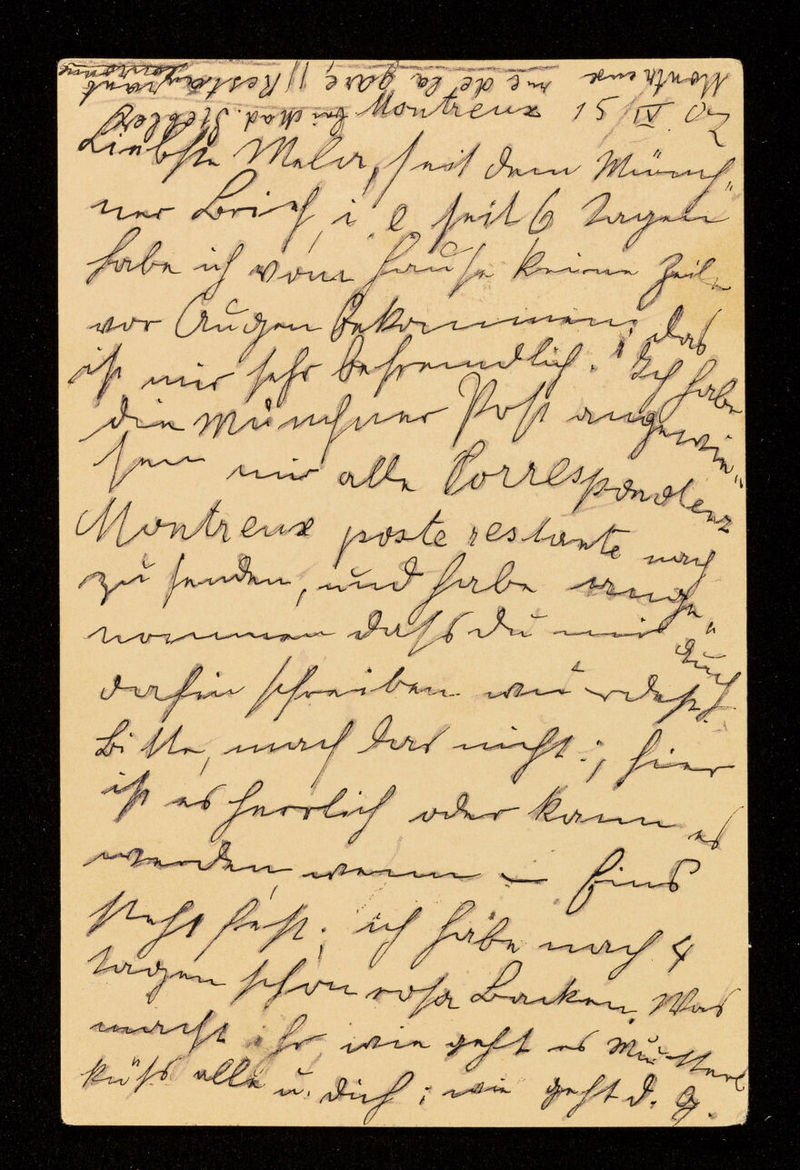 Montreux 15/IV. 02
Montreux rue de la gare, Restaurant
bei Mad. Siebler
Liebste Mela, seit dem Münch-
ner Brief, i. e seit 6 Tagen
habe ich vom Hause keine Zeile
vor Augen bekommen; das
ist mir sehr befremdlich. Ich habe
die Münchner Post angewie-
sen mir alle Correspondenz
Montreux poste restante nach
zu senden, und habe ange-
nommen dass du mir auch
dahin schreiben würdest.
Bitte, mach das nicht; hier
ist es herrlich oder kann es
werden, wenn – Eins
steht fest; ich habe nach 4
Tagen schon rosa Backen. Was
macht ihr, wie geht es Mutterl
küss alle u. dich; wie geht d. G.